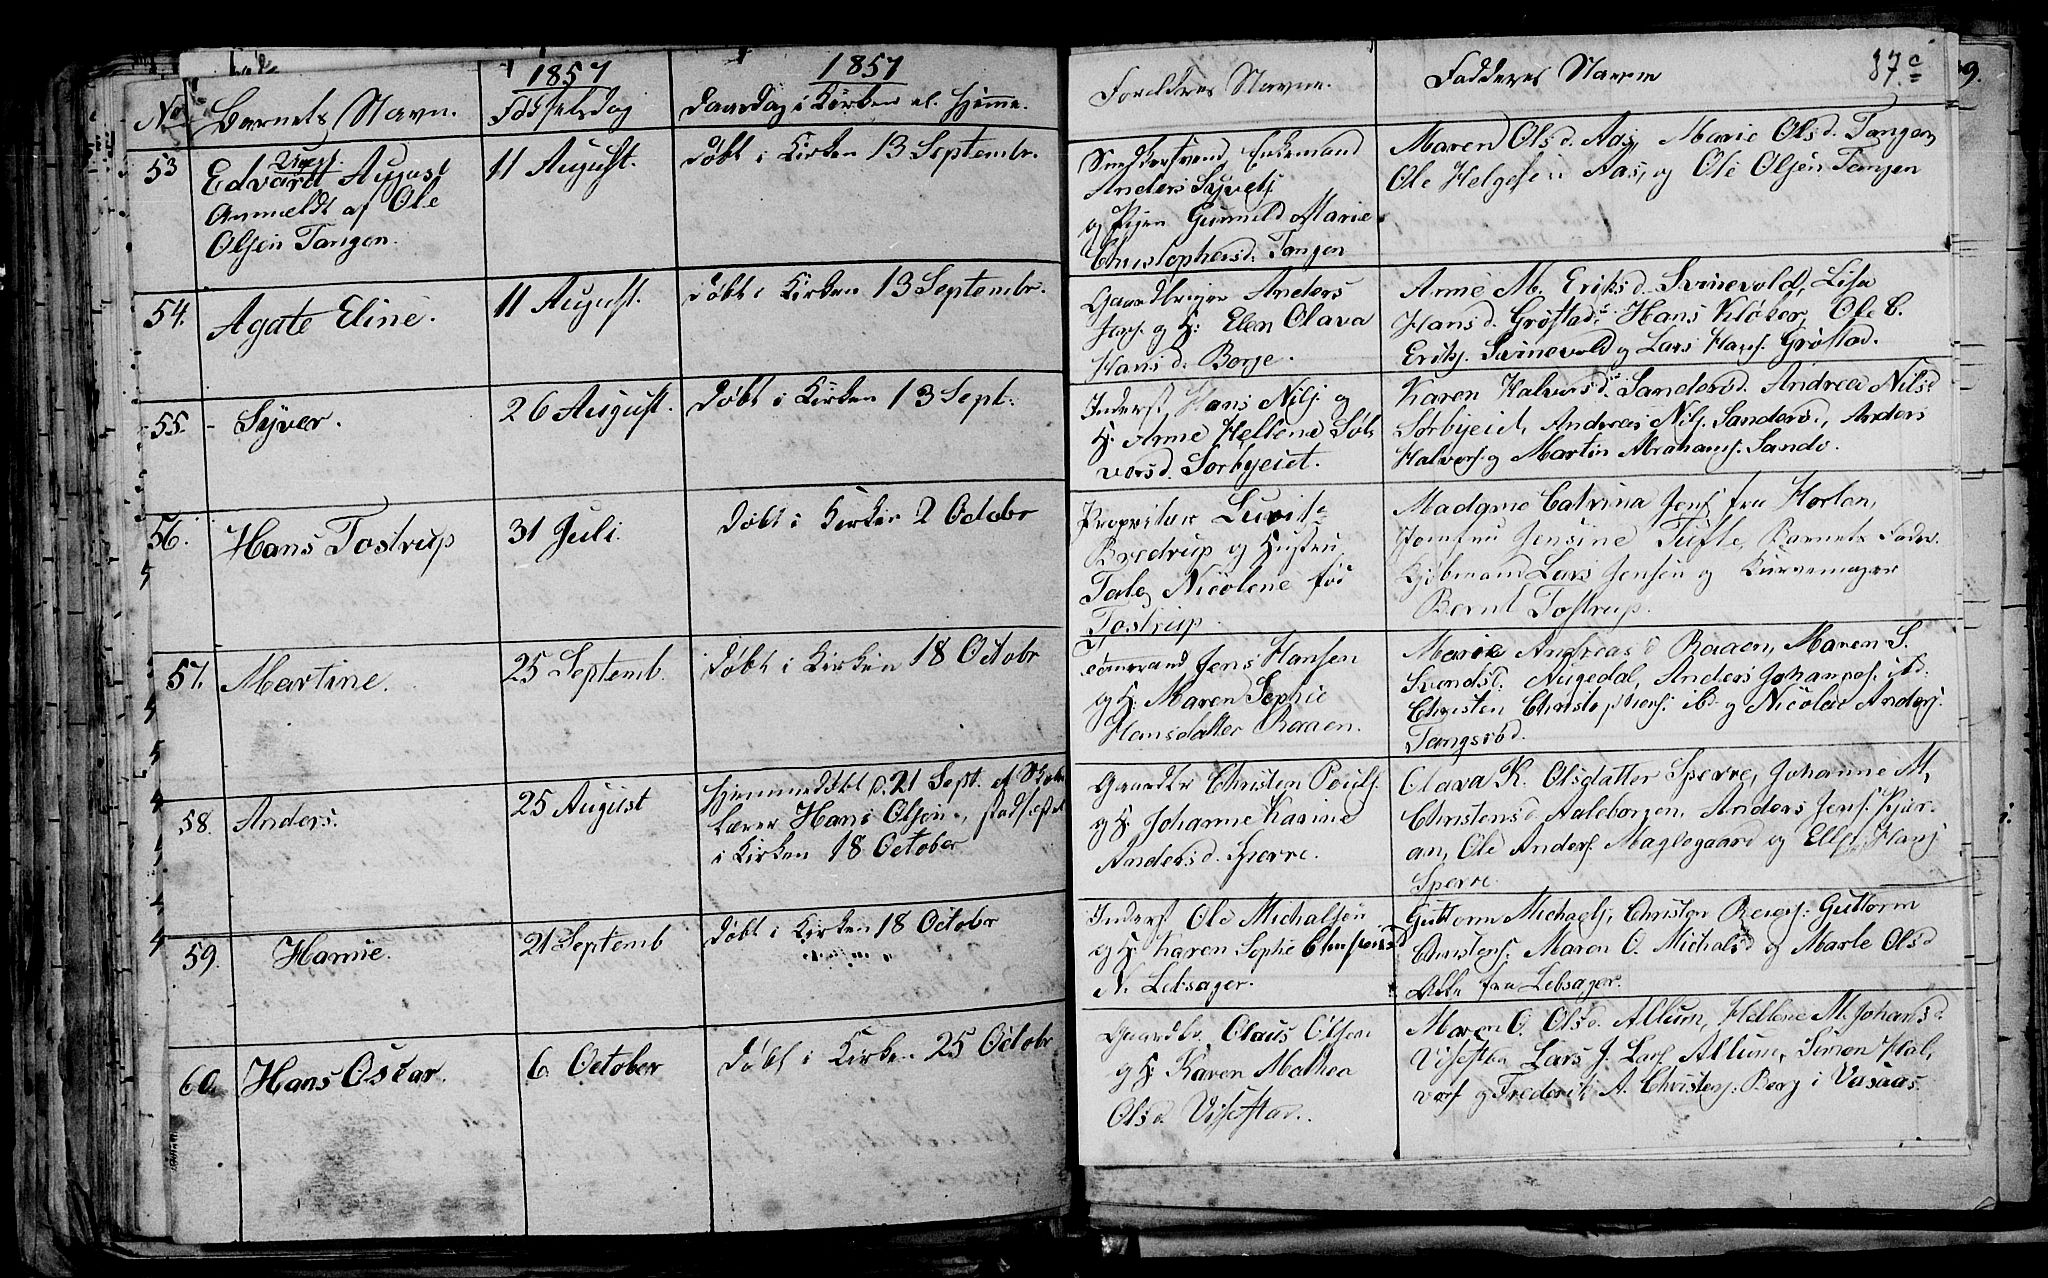 1857
1857
No
Barnets Navn.
Fødselsdag
Daabsdag i Kirken el. Hjemme.
Foreldres Navne.
Fadderes Navne
87 c
53
Uægt.
Edvard August
Anmeldt af Ole
Olsen Tangen.
11 August.
Døbt i Kirken 13 Septembr.
Enkemand
Anders Syvers
og Pigen Gunnild Marie
Christophersd. Tangen
Maren Olsd. Aas, Marie Olsd. Tangen,
Ole Helgesen Aas, og Ole Olsen Tangen
54.
Agate Eline.
11 August.
Døbt i Kirken 13 Septembr.
Gaardbruger Anders
og H: Elen Olava
Hansd. Borge.
Anne M. Eriksd. Svinevold, Lisa
Hansd. Grøstad, Hans Kløker, Ole C.
Eriks. Svinevold og Lars Hans. Grøstad.
55.
Syver.
26 August.
Døbt i Kirken 13 Sept.
Inderst Hans Nils. og
H: Anne Hellene Hal
vorsd. Sørbyeiet.
Karen Halvorsd. Sanders. Andrea Nilsd
Sørbyeiet, Andreas Nils. Sander, Anders
Halvors. og Martin Abrahams. Sande.
56.
Hans Tostrup
31 Juli.
Døbt i Kirken 2 Octobr
Proprietær
Bredrup og Hustru
Tale Nicolene fød
Tostrup
Madame Catrina Jens. fra Horten,
Jomfru Jensine Tufte, Barnets Fader.
Kjøbmand Lars Jensen og Buntmager
Bernt Tostrup.
57.
Martine.
25 Septemb.
Døbt i Kirken 18 Octobr
Tømmermand Jens Hansen
og H: Maren Sophie
Hansdatter Raaen.
Marie Andreasd Raaen, Maren S.
Svendsd. Augedal, Anders Johannes. ibd.
Christen Christophers. ibd. og Nicolai Anders.
Tangsrød.
58.
Anders.
25 August
Hjemmedøbt d. 21 Sept. af Skole
lærer Hans Olsen, stadfæstet
i Kirken 18 October
Gaardbr Christen Pouls.
og H: Johanne Karine
Andersd. Sperre.
Olava K. Olsdatter Sperre, Johanne M.
Christensd. Aaleborgen, Anders Jens. Kjær-
an, Ole Anders. Maglegaard og Ellef Hans.
Sperre.
59.
Hanne.
21 Septemb
Døbt i Kirken 18 Octobr
Inderst Ole Michalsen
og H: Karen Sophie Christensd
N. Lebsager.
Guttorm Michaels, Christen Reiers: Guttorm
Christens. Maren O. Michalsd og Marte Olsd
Alle fra Lebsager.
60.
Hans Oscar.
6. October
Døbt i Kirken 25 Octobr
Gaardbr. Claus Olsen
og H: Karen Mathea
Olsd. Vissestad.
Maren O. Olsd. Allum, Hellene M. Johansd
Vissestad Lars J. Lars. Allum, Simon Hal,
vors. og Frederik A. Christens. Berg i Vasaas.